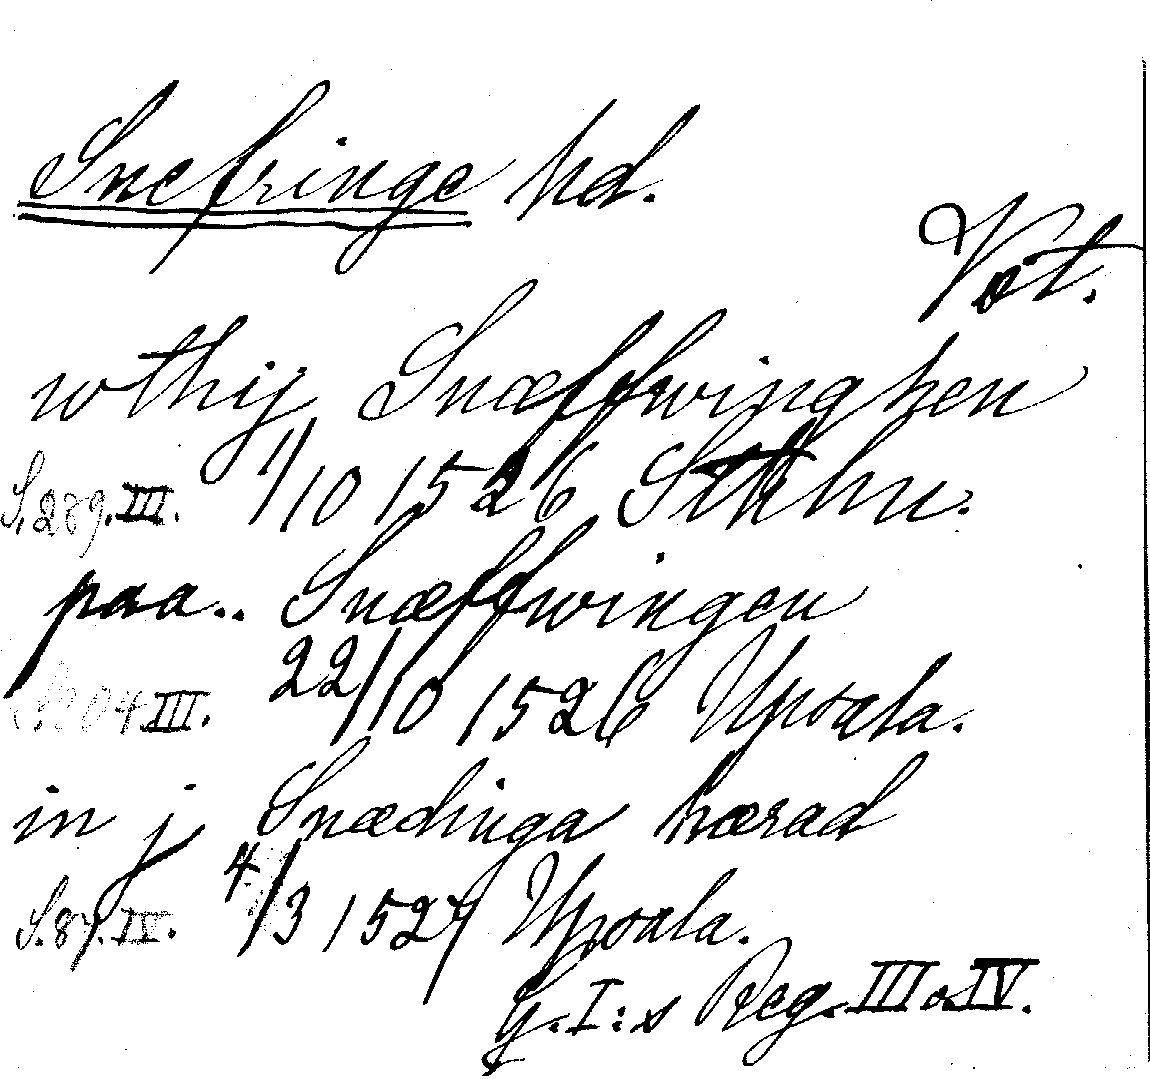 Snefringe hd.
Vst.
wthij Snæffwinghen
S. 289. III. 1/10 1526 Sthlm.
paa.. Snæffwingen
III. 22/10 1526 Upsala.
in j Snædinga hærad
S. 87. IV. 4/3 1527 Upsala.
G. I:s Reg. III o. IV.